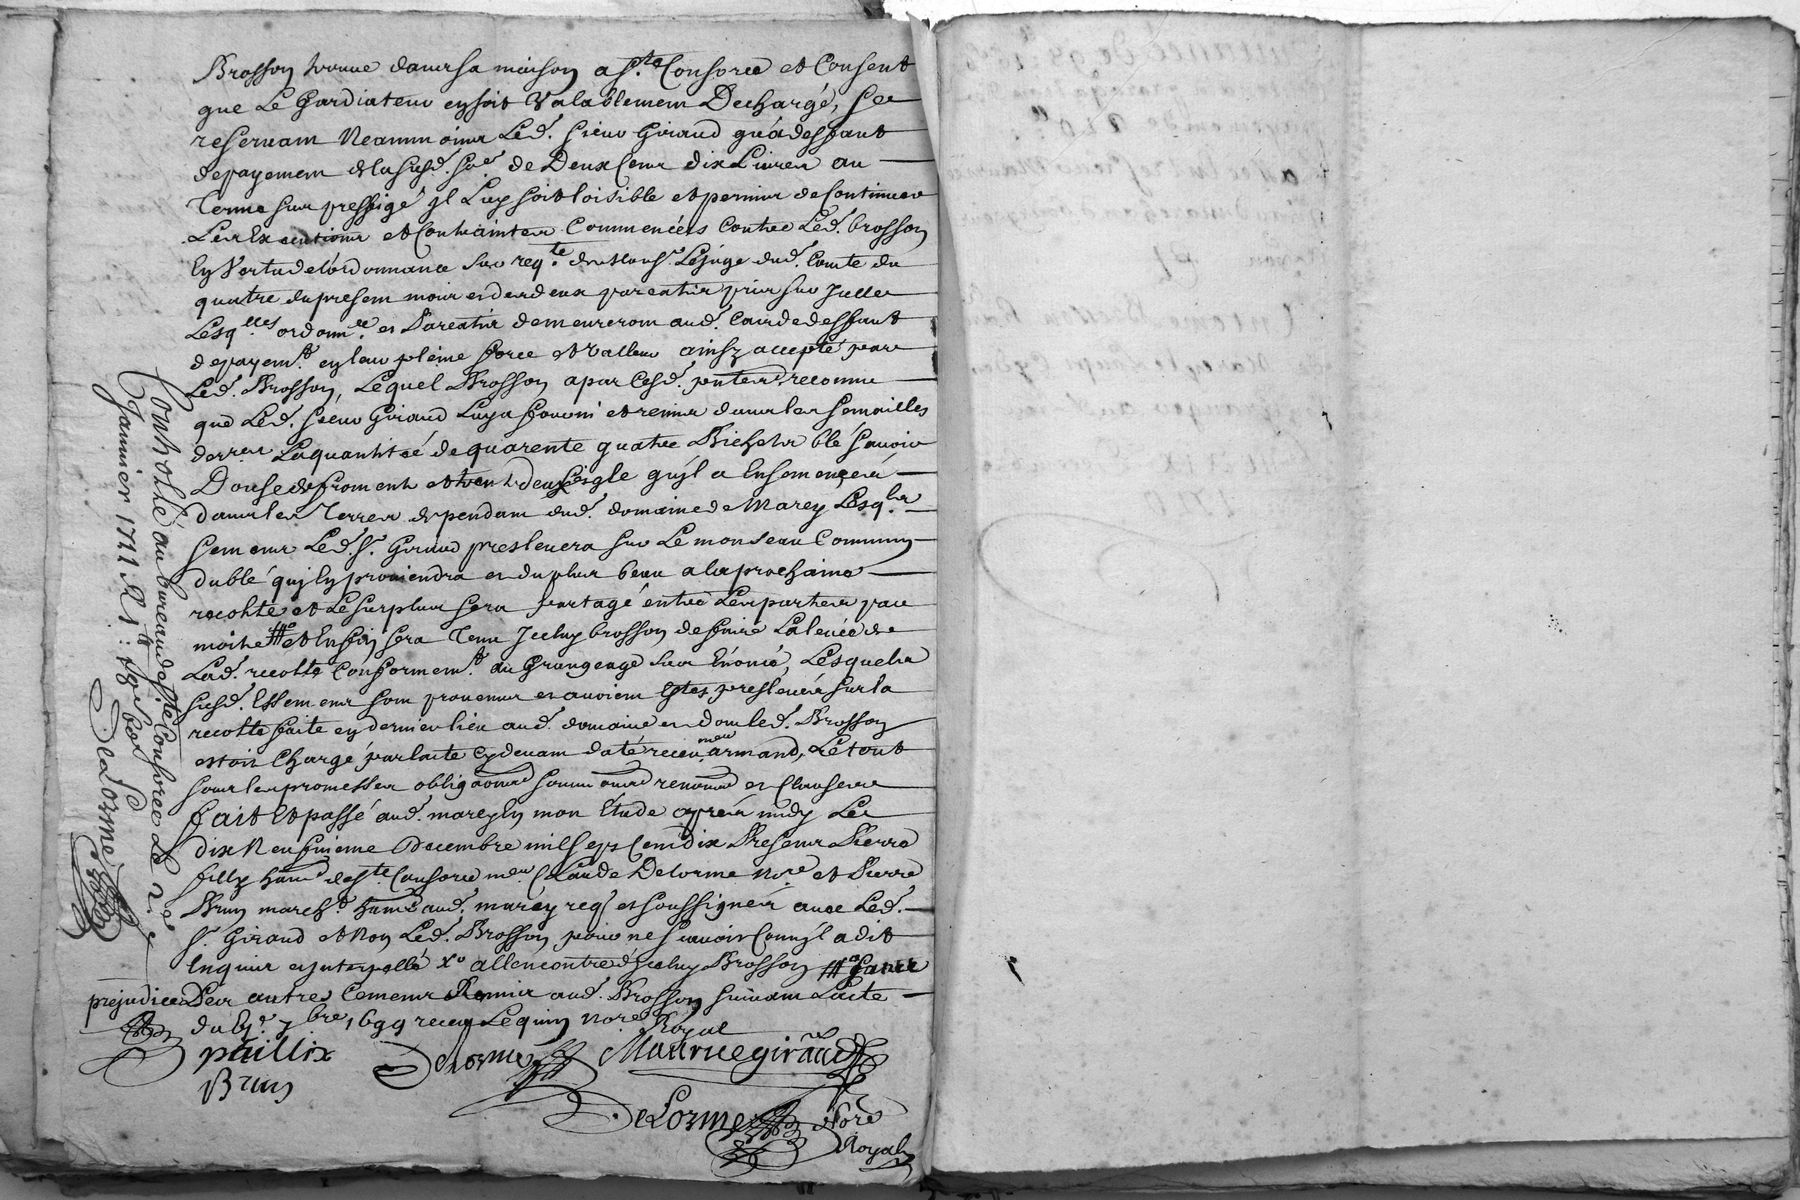 Brosson trouvé dans sa maison a Ste Consorce et Consent
que Le Gardiateur en soit Valablement Dechargé, se
reservant Neammoins Led. sieur Giraud qu'a deffaut
de payement de la susd. so.e de Deux Cent dix Livres au
Terme sus preffigé il Luy soit loisible et permis de Continuer
Les Executions et Contraintes Commencées Contre Led. brosson
En Vertu de l'ordonnance sur reqte de Mons.r Le juge dud. Comte du
quatre du present mois et des deux pareatis pris sur Julle
Lesq.lles ordonn.ce et Pareatis demeureront aud. Cas de deffaut
de payem.t en leur pleine force et valleur ainsy accepté par
Led. Brosson, Lequel Brosson a par Cesd. pntes reconnu
que Led. sieur Giraud Luy a fourni et remis dans les semailles
der.res La quantité de quarente quatre Bichets blé sçavoir
Douse de froment et trent deux seigle qu'il a Ensemencés
dans les Terres dependant dud. domaine de Marcy Lesq.les
semens Led. S.r Giraud preslevera sur Le monseau Commun
du blé qui En proviendra et du plus beau a la prochaine
recolte et Le surplus sera partagé entre Les parties par
moitié # et Enfin sera Tenu Icelluy brosson de faire La levée de
Lad. recolte Conformem.t au Grangeage sus Enoncé, Lesquels
susd. Essemens sont provenus et avoient Estes preslevés sur la
recolte faite en dernier lieu aud. domaine et dont led. Brosson
estoit Chargé par l'acte cy devant daté receu m.e armand, Le tout
sous les promesses obligaons soumi ons renons et Clauses
fait Et passé aud. marcy En mon Etude apres midy Le
dix Neufvieme Decembre mil sept Cent dix Presens Pierre
filly ham.t de Ste Consorce m.e Claude Delorme No.re et Pierre
Brun march.d ham.t aud. marcy req.s et soussignés avec Led.
S.r Giraud et Non Led. Brosson pour ne sçavoir Comm'il a dit
Enquis et Interpellé X.o allencontre d'Icelluy Brosson # sans
prejudice Des autres Cemens Remis aud. Brosson suivant L'acte
du 7bre 1699 receu Lequin No.re Royal
paillix Delorme Maurice giraud
Brun
Delorme No.re
Royal
Controllé au bureau de Ste Consorce Le 2.e
Janvier 1711 R
Delorme